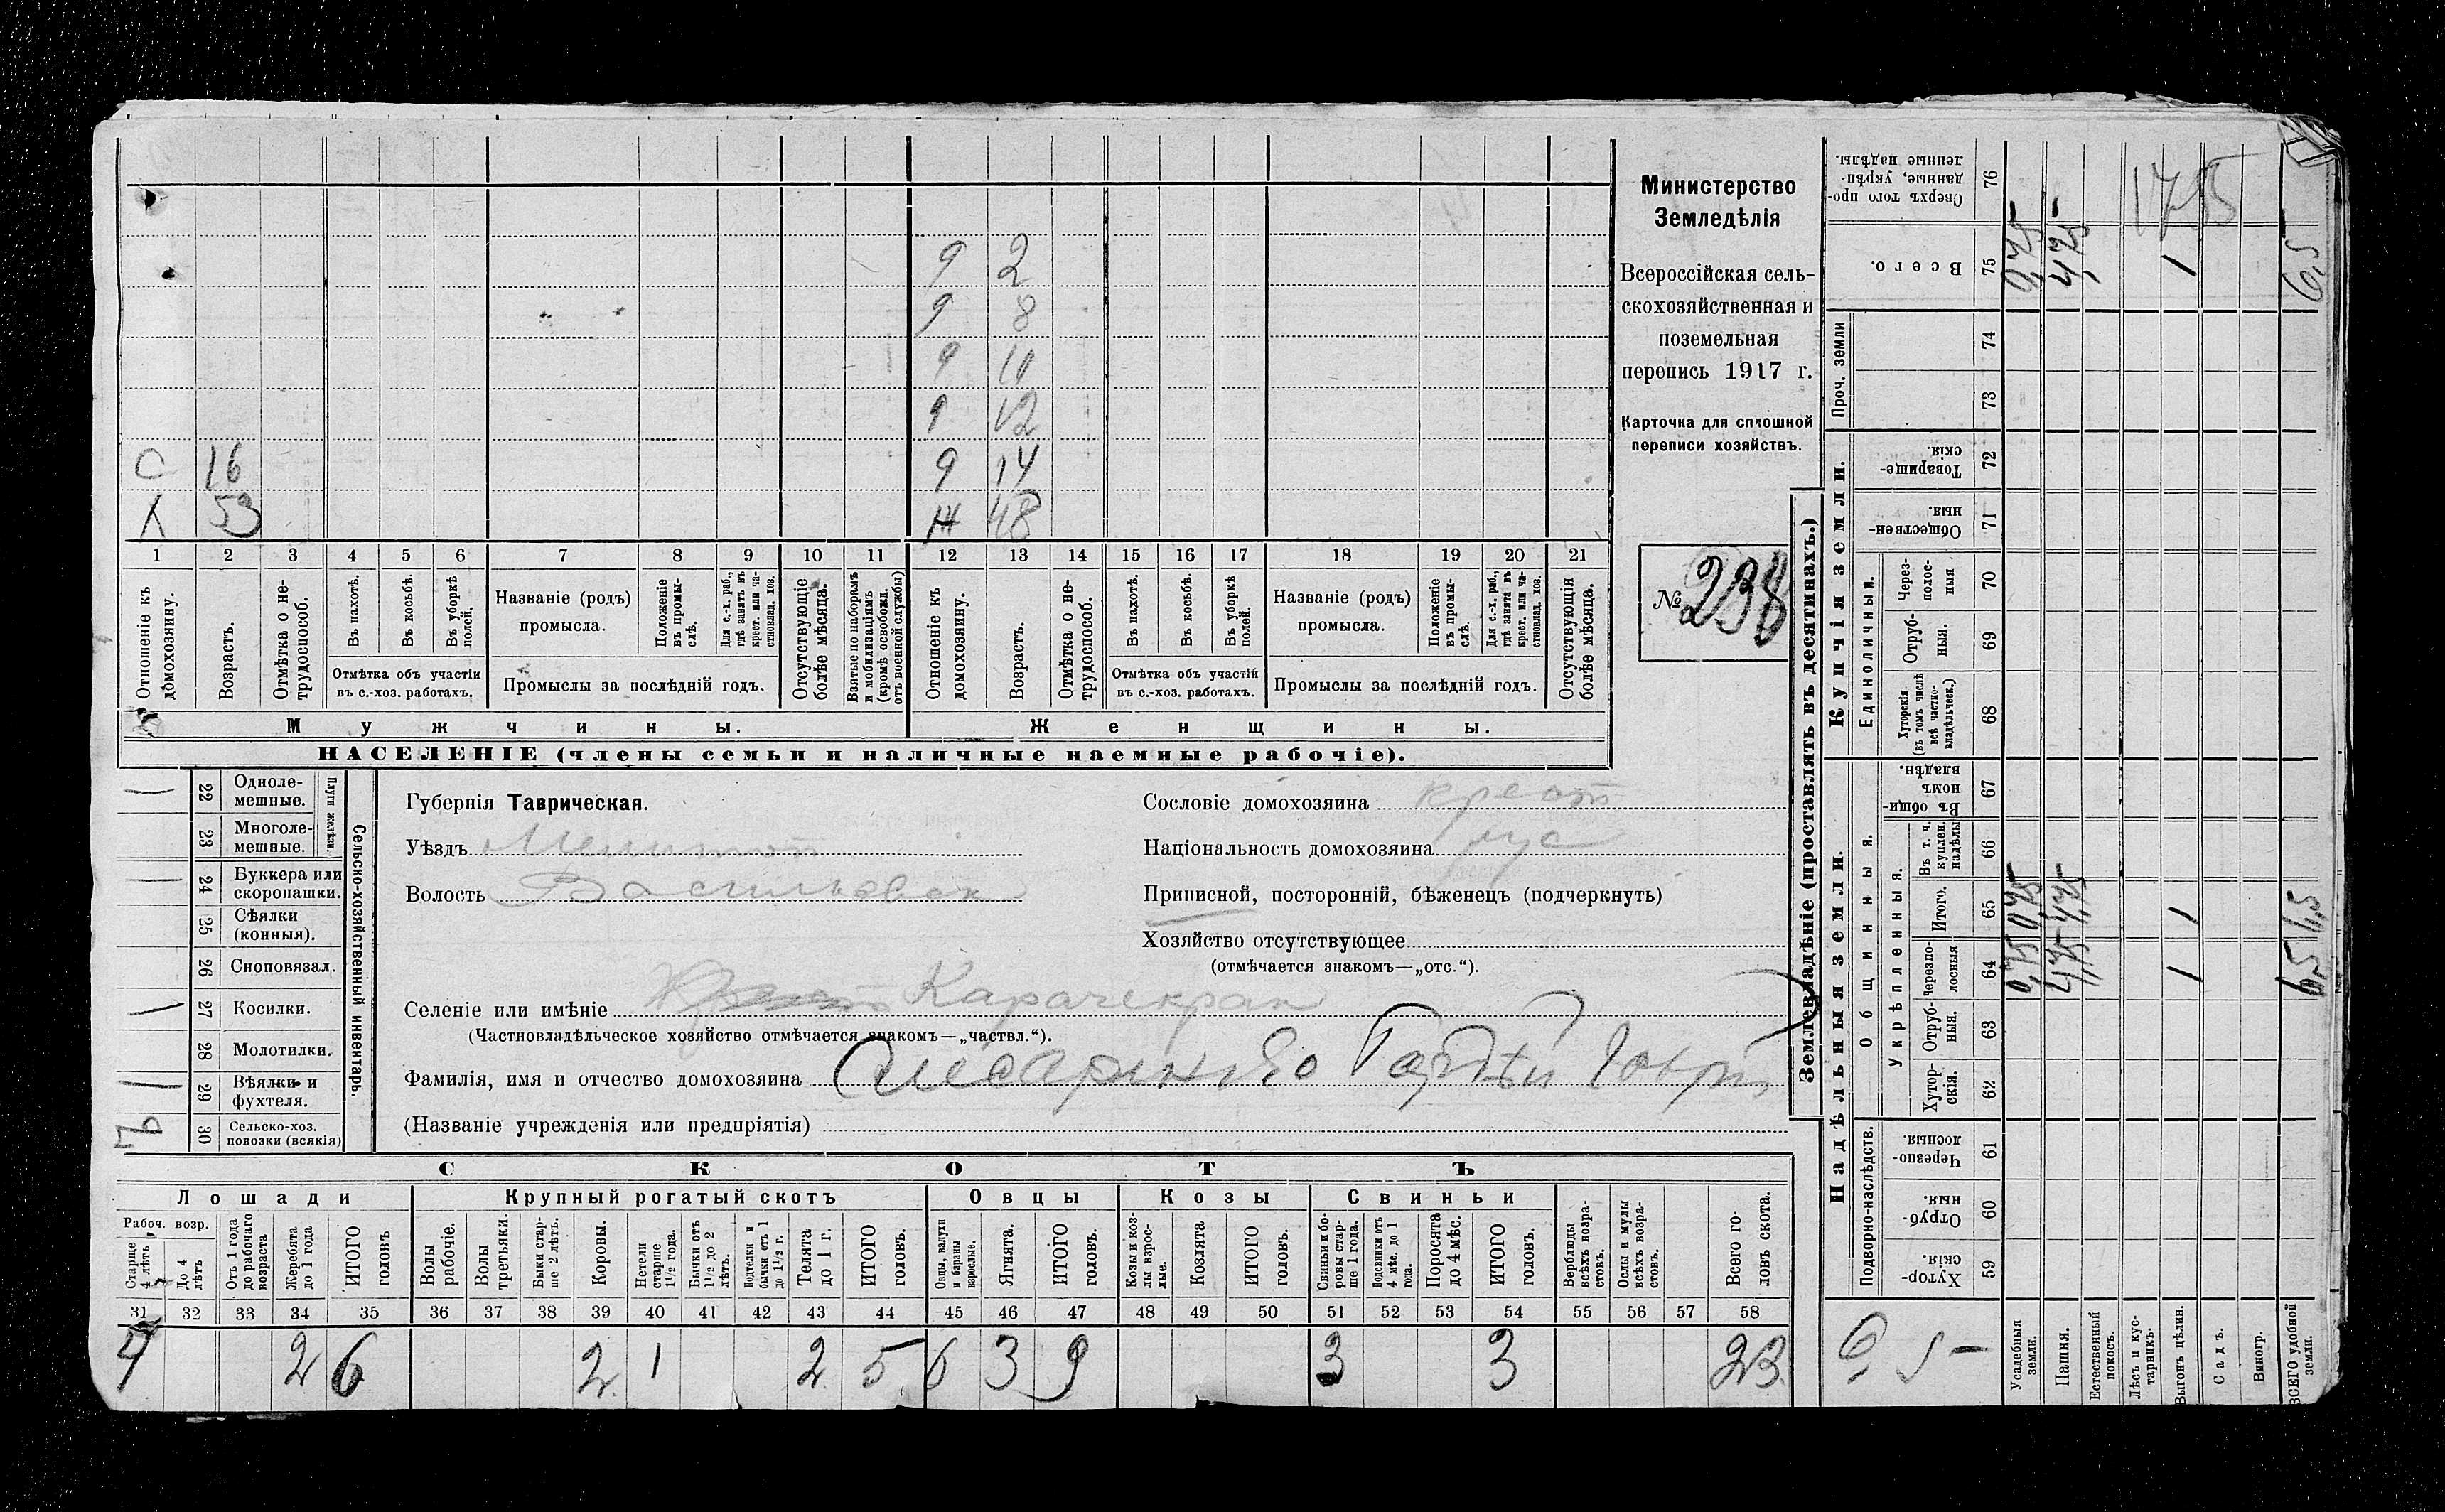 Министерство
Земледѣлія
Всероссійская сель-
скохозяйственная и
поземельная
перепись 1917 г.
Карточка для сплошной
переписи хозяйствъ.
№ 238
9 2
9 8
9 10
9 12
С 16 9 14
Х 53 Ж 48
1 2 3 4 5 6 7 8 9 10 11 12 13 14 15 16 17 18 19 20 21
Отношеніе къ домохозяину.
Возрастъ.
Отмѣтка о не-трудоспособ.
Въ пахотѣ.
Въ косьбѣ.
Въ уборкѣ полей.
Отмѣтка объ участіи
въ с.-хоз. работахъ.
Названіе (родъ)
промысла.
Положеніе въ промы-слѣ.
Для с.-х. раб., гдѣ занятъ въ крест. или ча-стновлад. хоз.
Промыслы за послѣдній годъ.
Отсутствующіе болѣе мѣсяца.
Взятые по наборамъ и мобилизаціямъ (кромѣ освобожд. отъ военной службы)
Отношеніе къ домохозяину.
Возрастъ.
Отмѣтка о не-трудоспособ.
Въ пахотѣ.
Въ косьбѣ.
Въ уборкѣ полей.
Отмѣтка объ участіи
въ с.-хоз. работахъ.
Названіе (родъ)
промысла.
Положеніе въ промы-слѣ.
Для с.-х. раб., гдѣ занята въ крест. или ча-стновлад. хоз.
Промыслы за послѣдній годъ.
Отсутствующія болѣе мѣсяца.
Мужчины.
Женщины.
НАСЕЛЕНІЕ (члены семьи и наличные наемные рабочіе).
Сельско-хозяйственный инвентарь.
Плуги желѣзн.
22 Одноле-мешные.
23 Многоле-мешные.
24 Буккера или скоропашки.
25 Сѣялки (конныя).
26 Сноповязал.
27 Косилки.
28 Молотилки.
29 Вѣялки и фухтеля.
30 Сельско-хоз. повозки (всякія)
Губернія Таврическая.
Уѣздъ Мелитоп
Волость Васильевск
Сословіе домохозяина крест
Національность домохозяина рус
Приписной, посторонній, бѣженецъ (подчеркнуть)
Хозяйство отсутствующее
(отмѣчается знакомъ—„отс.“).
Селеніе или имѣніе Карачекрак
(Частновладѣльческое хозяйство отмѣчается знакомъ—„частвл.“).
Фамилія, имя и отчество домохозяина
(Названіе учрежденія или предпріятія)
СКОТЪ
Лошади
Крупный рогатый скотъ
Овцы
Козы
Свиньи
Рабоч. возр.
Старше 4 лѣтъ
До 4 лѣтъ
Отъ 1 года до рабочаго возраста
Жеребята до 1 года
ИТОГО головъ
Волы рабочіе.
Волы третьяки.
Быки стар-ше 2 лѣтъ.
Коровы.
Нетели старше 1½ года.
Бычки отъ 1½ до 2 лѣтъ.
Подтелки и бычки отъ 1 до 1½ г.
Телята до 1 г.
ИТОГО головъ.
Овцы, валухи и бараны взрослые.
Ягнята.
ИТОГО головъ.
Козы и коз-лы взрос-лые.
Козлята
ИТОГО головъ.
Свиньи и бо-ровы стар-ше 1 года.
Подсвинки отъ 4 мѣс. до 1 года.
Поросята до 4 мѣс.
ИТОГО головъ.
Верблюды всѣхъ возра-стовъ.
Ослы и мулы всѣхъ возра-стовъ.
Всего го-ловъ скота.
31 32 33 34 35 36 37 38 39 40 41 42 43 44 45 46 47 48 49 50 51 52 53 54 55 56 57 58
4 2 6 2 1 2 5 6 3 9 3 3 23
Землевладѣніе (проставлять въ десятинахъ.)
Надѣльныя земли.
Купчія земли.
Проч. земли
Подворно-наслѣдств.
Общинныя.
Укрѣпленныя.
Единоличныя.
59 Хутор-скія.
60 Отруб-ныя.
61 Черезпо-лосныя
62 Хутор-скія.
63 Отруб-ныя.
64 Черезпо-лосныя
65 Итого.
66 Въ т. ч. куплен. надѣлы
67 Въ общи-номъ владѣн.
68 Хуторскія (въ томъ числѣ всѣ частно-владѣльческ.)
69 Отруб-ныя.
70 Через-полос-ныя
71 Обществен-ныя.
72 Товарище-скія.
73
74
75 Всего.
76 Сверхъ того про-данные, укрѣп-ленные надѣлы.
Усадебныя земли. 0,75 0,75 0,75
Пашня. 4,75 4,75 4,75
Естественный покосъ.
Лѣсъ и кус-тарникъ.
Выгонъ цѣлин. 1 1 1
Садъ.
Виногр.
ВСЕГО удобной земли. 6,5 6,5 6,5